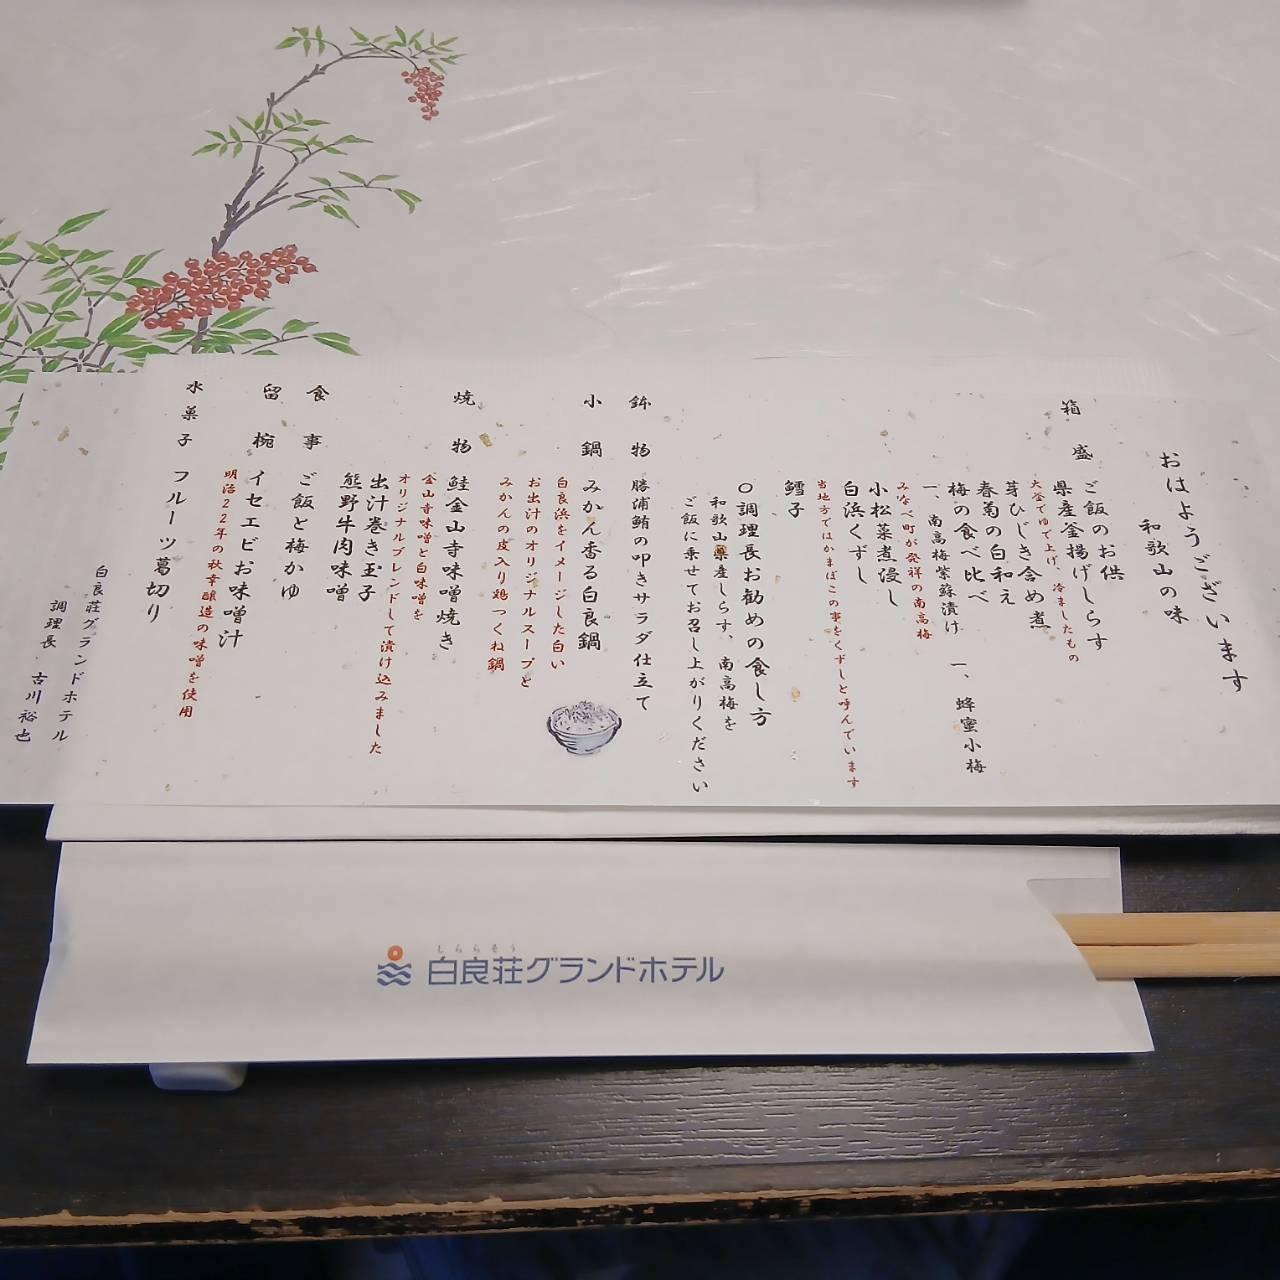 おはようございます
和歌山の味
箱盛
ご飯のお供
県産釜揚げしらす
大釜でゆで上げ、冷ましたもの
芽ひじき含め煮
春菊の白和え
梅の食べ比べ
一、南高梅紫蘇漬け 一、蜂蜜小梅
みなべ町が発祥の南高梅
小松菜煮浸し
白浜くずし
当地方ではかまぼこの事をくずしと呼んでいます
鱈子
○調理長お勧めの食し方
和歌山県産しらす、南高梅を
ご飯に乗せてお召し上がりください
鉢物 勝浦鮪の叩きサラダ仕立て
小鍋 みかん香る白良鍋
白良浜をイメージした白い
お出汁のオリジナルスープと
みかんの皮入り鶏つくね鍋
焼物 鮭金山寺味噌焼き
金山寺味噌と白味噌を
オリジナルブレンドして漬け込みました
出汁巻き玉子
熊野牛肉味噌
食事 ご飯と梅かゆ
留椀 イセエビお味噌汁
明治22年の秋幸醸造の味噌を使用
水菓子 フルーツ葛切り
白良荘グランドホテル
調理長 古川裕也
しららそう
白良荘グランドホテル